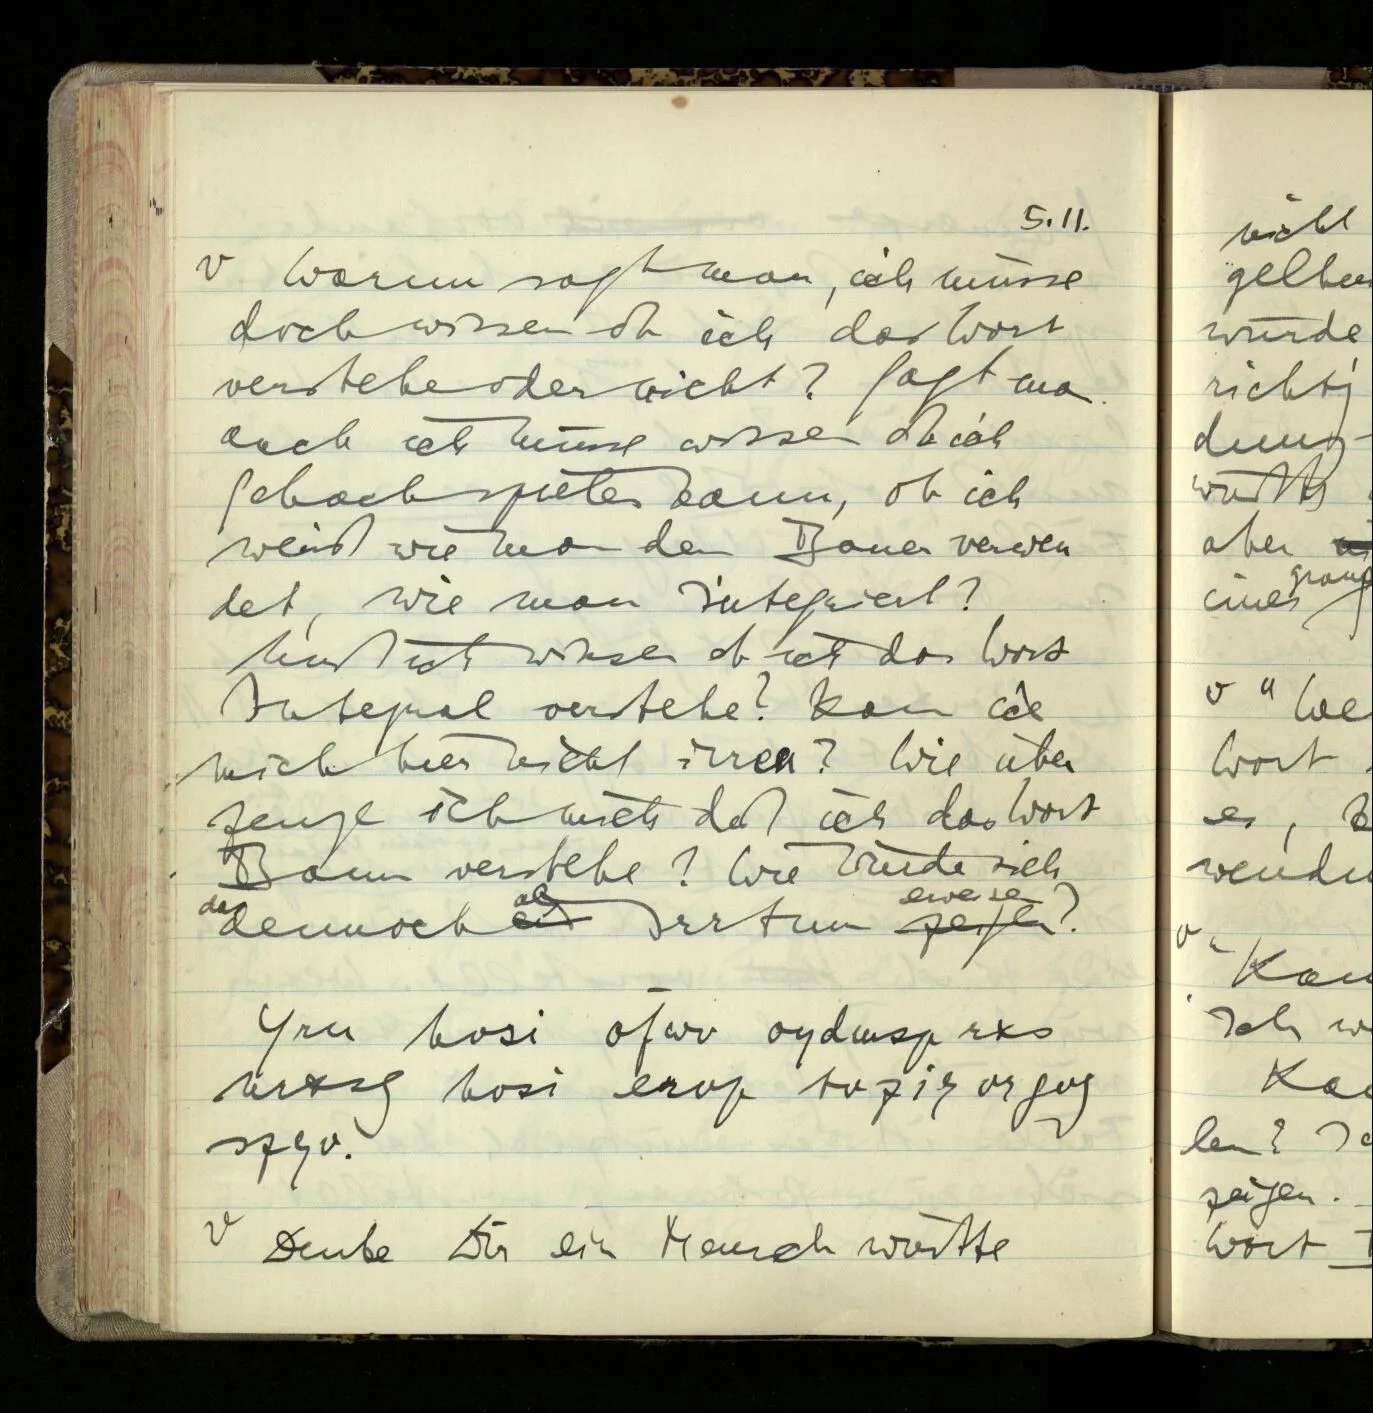 5.11.
v Warum sagt man, ich müsse
doch wissen ob ich das Wort
verstehe oder nicht? Sagt man
auch ich müsse wissen ob ich
Schach spielen kann, ob ich
weiß wie man den Bauer verwen
det, wie man integriert?
Muß ich wissen ob ich das Wort
Integral verstehe? Kann ich
mich hier nicht irren? Wie über
zeuge ich mich daß ich das Wort
Baum verstehe? Wie würde sich
das als erweisen
dennoch Irrtum zeigen?
Yru hosi ofwv oydmsp rxs
hosi
v Denke Dir ein Mensch wüßte
nicht
gelben
würde
richtig
dung
wüßte
aber
eines
v "We
Wort
es, k
wendu
v "Kan
Ich w
Kan
len? Ic
zeigen.
Wort